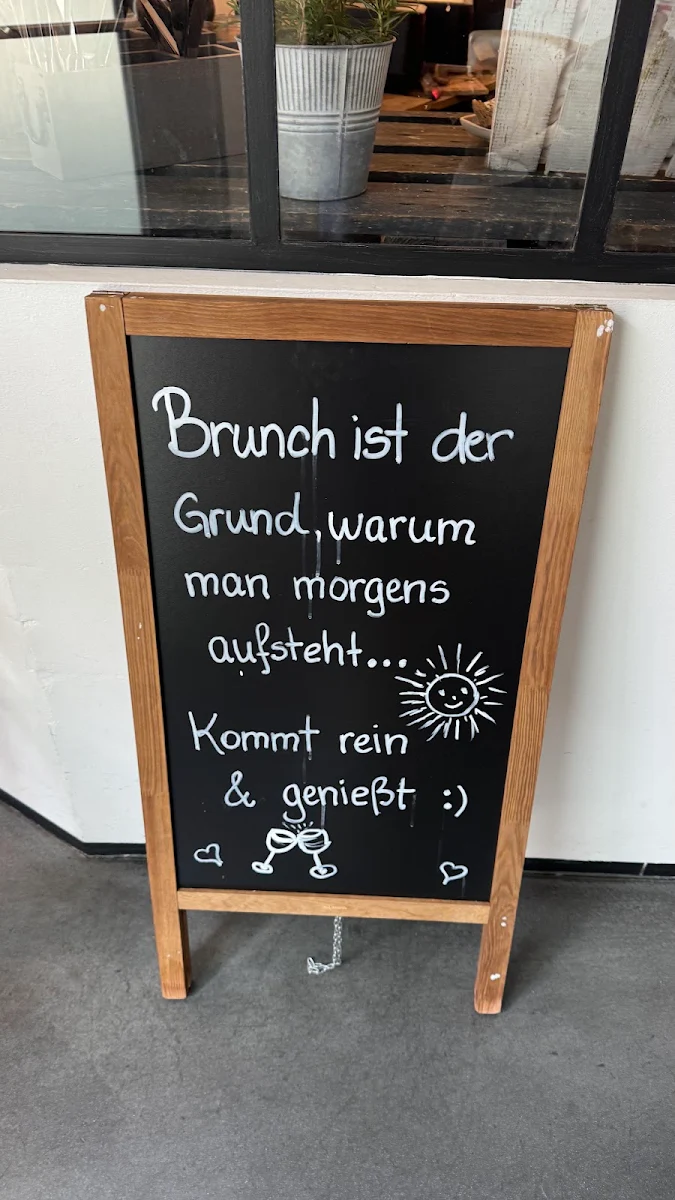 Brunch ist der
Grund, warum
man morgens
aufsteht...
Kommt rein
& genießt :)